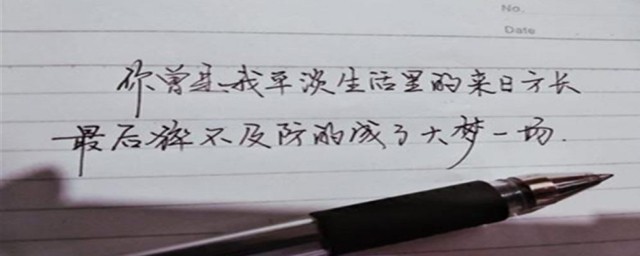 No.
Date
你曾是我平淡生活里的来日方长
最后猝不及防的成了大梦一场.